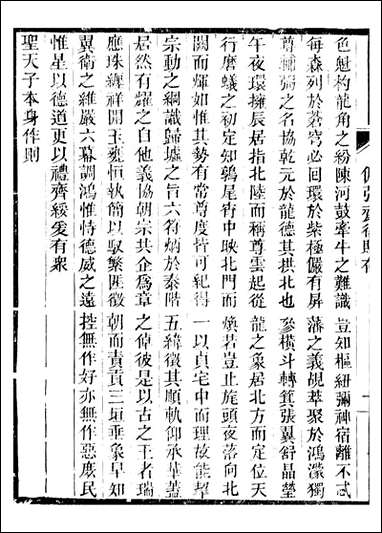 佩弦齋律賦存
色魁杓龍角之紛陳河鼓牽牛之難識豈知樞紐彌神宿離不忒
每森列於蒼穹必回環於紫極儼有屏藩之義覘萃聚於鴻濛獨
尊輔弼之名協乾元於龍德其拱北也參橫斗轉箕張翼舒晶瑩
午夜環擁辰居指北陸而稱尊雲起從龍之象居北方而定位天
行磨蟻之初定知鶉尾宵中映北門而煥若豈止旄頭夜落向北
闕而輝如惟其勢有常尊度皆可紀得一以貞宅中而理故能挈
宗動之綱識歸墟之旨六符炳於泰階五緯徵其順軌仰承華蓋
居然有耀之自他義協朝宗共企為章之倬彼是以古之王者瑞
應珠纏祥開玉甕恒執簡以馭繁匪徵朝而責貢三垣垂象早知
翼衛之維嚴六幕調鴻惟恃德威之遠控無作好亦無作惡庶民
惟星以德道更以禮齊綏爰有衆
聖天子本身作則